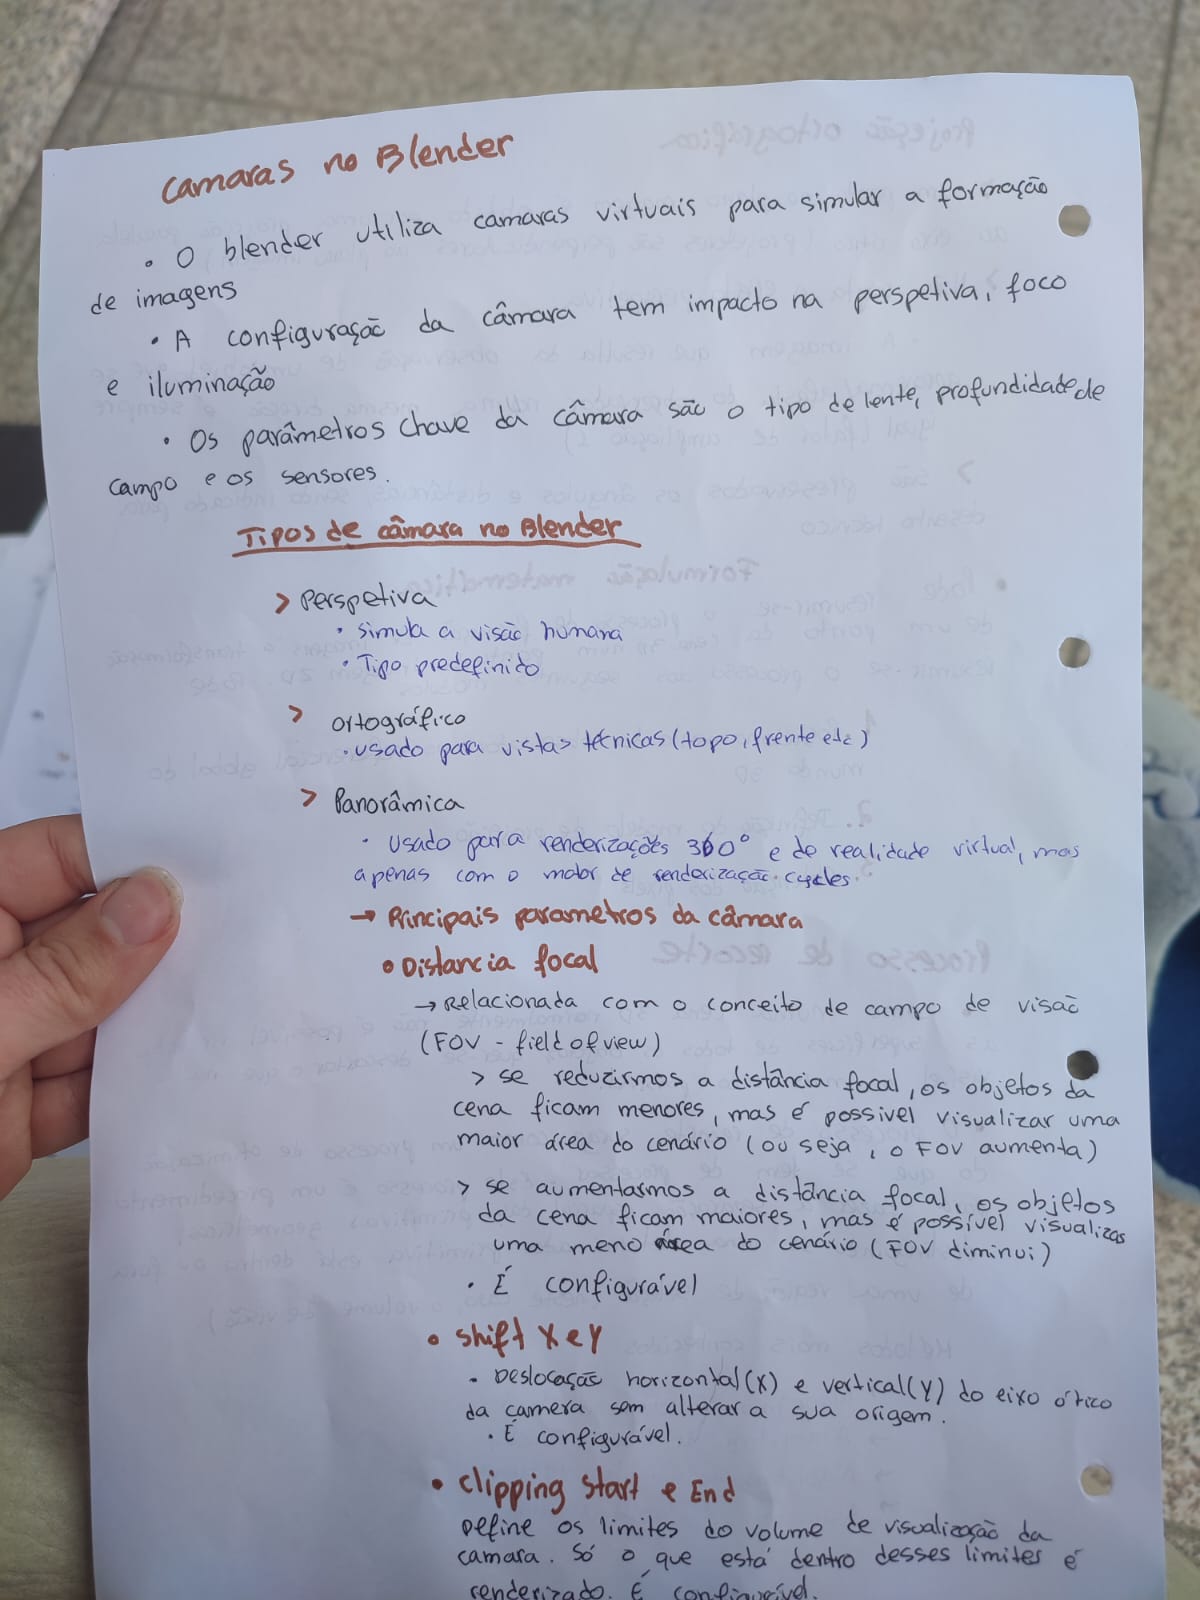 Camaras no Blender
• O blender utiliza camaras virtuais para simular a formação
de imagens
• A configuração da câmara tem impacto na perspetiva, foco
e iluminação
• Os parâmetros chave da câmara são o tipo de lente, profundidade de
campo e os sensores.
Tipos de câmara no Blender
> Perspetiva
• simula a visão humana
• Tipo predefinido
> ortográfico
• usado para vistas técnicas (topo, frente etc)
> Panorâmica
• Usado para renderizações 360° e de realidade virtual, mas
apenas com o motor de renderização. cycles.
→ Principais parametros da câmara
• Distancia focal
→ Relacionada com o conceito de campo de visão
(FOV - field of view)
> se reduzirmos a distância focal, os objetos da
cena ficam menores, mas é possivel visualizar uma
maior área do cenário (ou seja, o FOV aumenta)
> se aumentarmos a distância focal, os objetos
da cena ficam maiores, mas é possível visualizar
uma meno área do cenário (FOV diminui)
• É configurável
• shift X e Y
• Deslocação horizontal (X) e vertical (Y) do eixo ótico
da camera sem alterar a sua origem.
• É configurável.
• clipping start e End
Define os limites do volume de visualização da
camara. Só o que está dentro desses limites é
renderizado. É configurável.